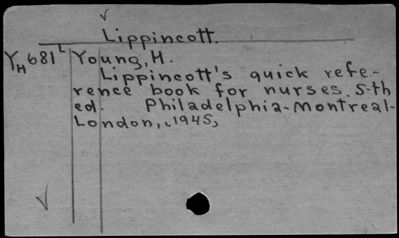 Lippincott.
YH681L Young, H.
Lippincott's quick refe-
rence book for nurses. 5-th
ed. Philadelphia-Montreal-
London, c1945,